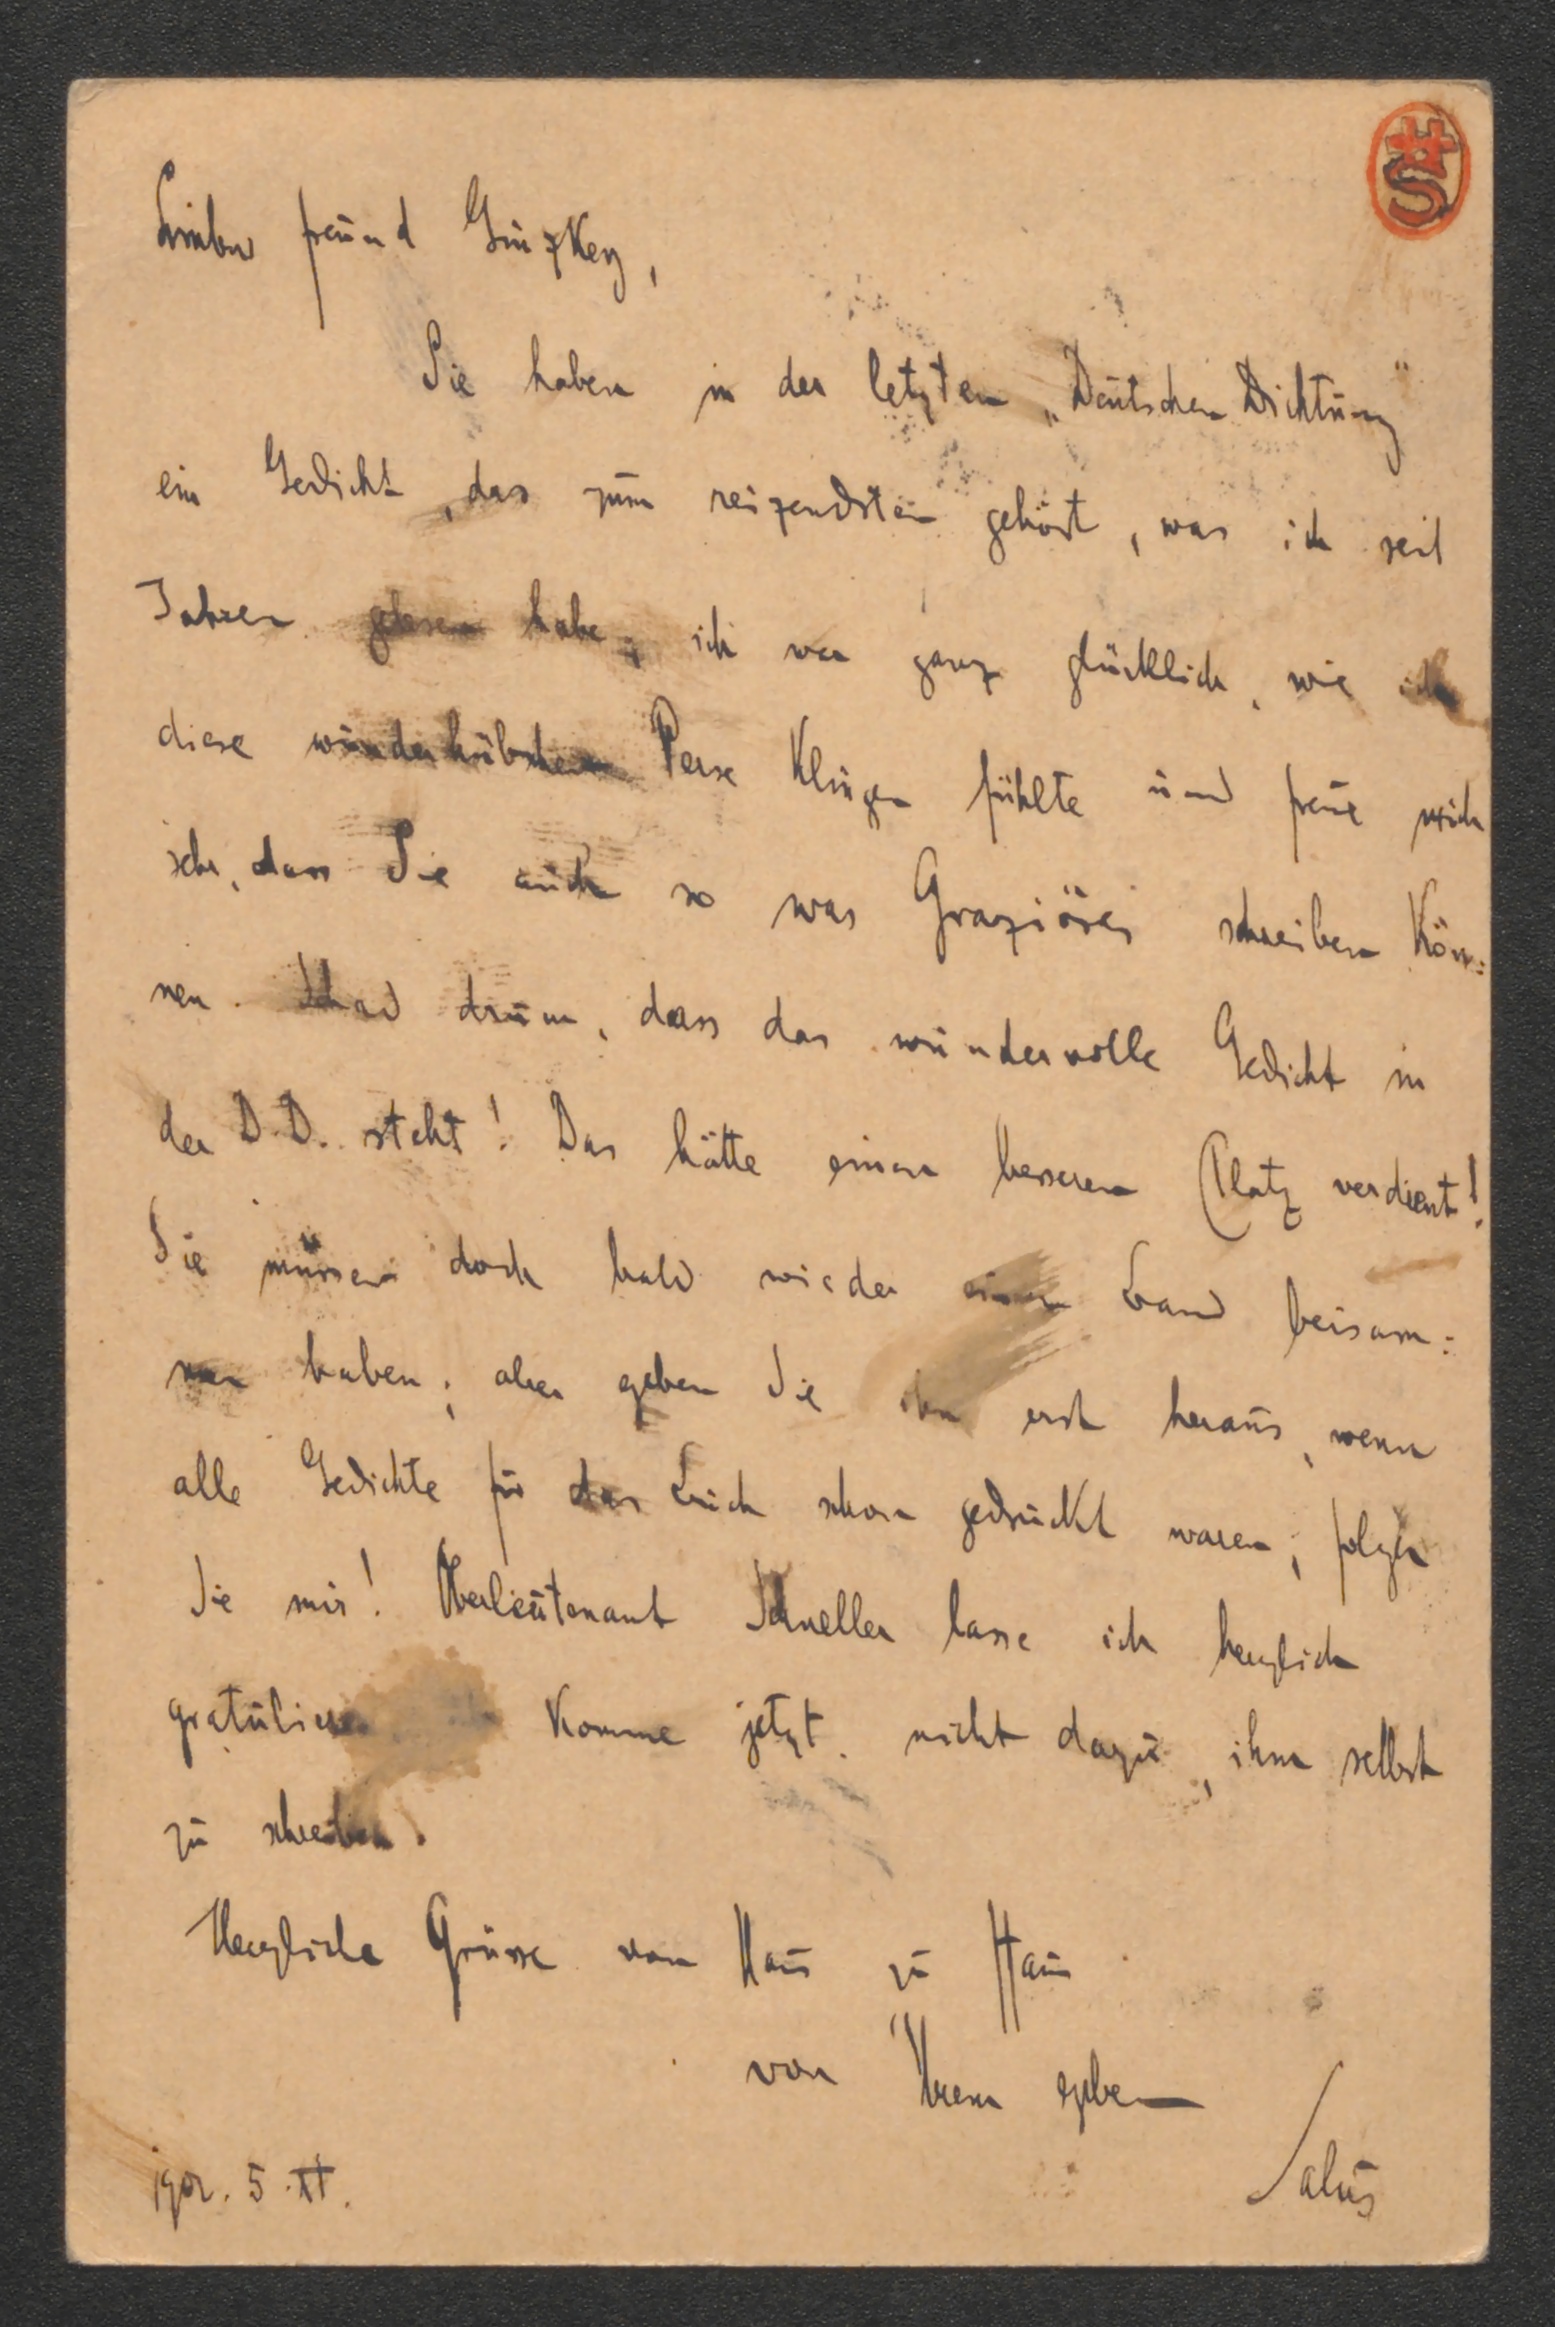 HS
Lieber Freund Ginzkey,
Sie haben in der letzten „Deutschen Dichtung"
ein Gedicht, das zum reizendsten gehört, was ich seit
Jahren gelesen habe; ich war ganz glücklich, wie ich
diese wunderhübschen Verse klingen fühlte und freue mich
sehr, dass Sie auch so was Graziöses schreiben kön=
nen. Schad drum, dass das wundervolle Gedicht in
der D.D. steht! Das hätte einen besseren Platz verdient!
Sie müssen doch bald wieder einen Band beisam=
men haben; aber geben Sie ihn erst heraus, wenn
alle Gedichte für das Buch schon gedruckt waren; folgen
Sie mir! Oberleutenant Schneller lasse ich herzlich
gratulieren ich komme jetzt nicht dazu, ihm selbst
zu schreiben.
Herzliche Grüsse von Haus zu Haus
von Ihrem ergeben
Salus
1902. 5. XI.